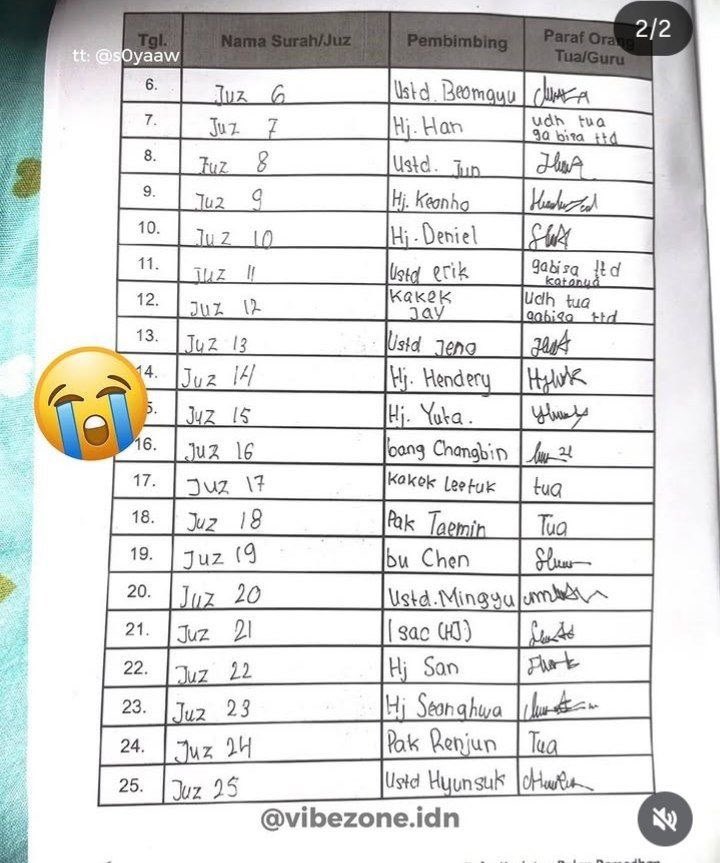 2/2
tt: @s0yaaw
Tgl. Nama Surah/Juz Pembimbing Paraf Orang
Tua/Guru
6. Juz 6 Ustd. Beomgyu
7. Juz 7 Hj. Han udh tua
ga bisa ttd
8. Juz 8 Ustd. Jun
9. Juz 9 Hj. Keonho
10. Juz 10 Hj. Deniel
11. Juz 11 Ustd erik gabisa ttd
katanya
12. Juz 12 Kakek Udh tua
Jay gabisa ttd
13. Juz 13 Ustd Jeno
14. Juz 14 Hj. Hendery
5. Juz 15 Hj. Yuta.
16. Juz 16 bang Changbin
17. Juz 17 Kakek Leetuk tua
18. Juz 18 Pak Taemin Tua
19. Juz 19 bu Chen
20. Juz 20 Ustd. Mingyu
21. Juz 21 Isac (HJ)
22. Juz 22 Hj San
23. Juz 23 Hj Seonghwa
24. Juz 24 Pak Renjun Tua
25. Juz 25 Ustd Hyunsuk
@vibezone.idn